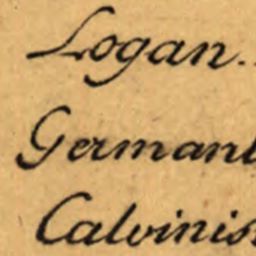 Logan.
Germant
Calvinis